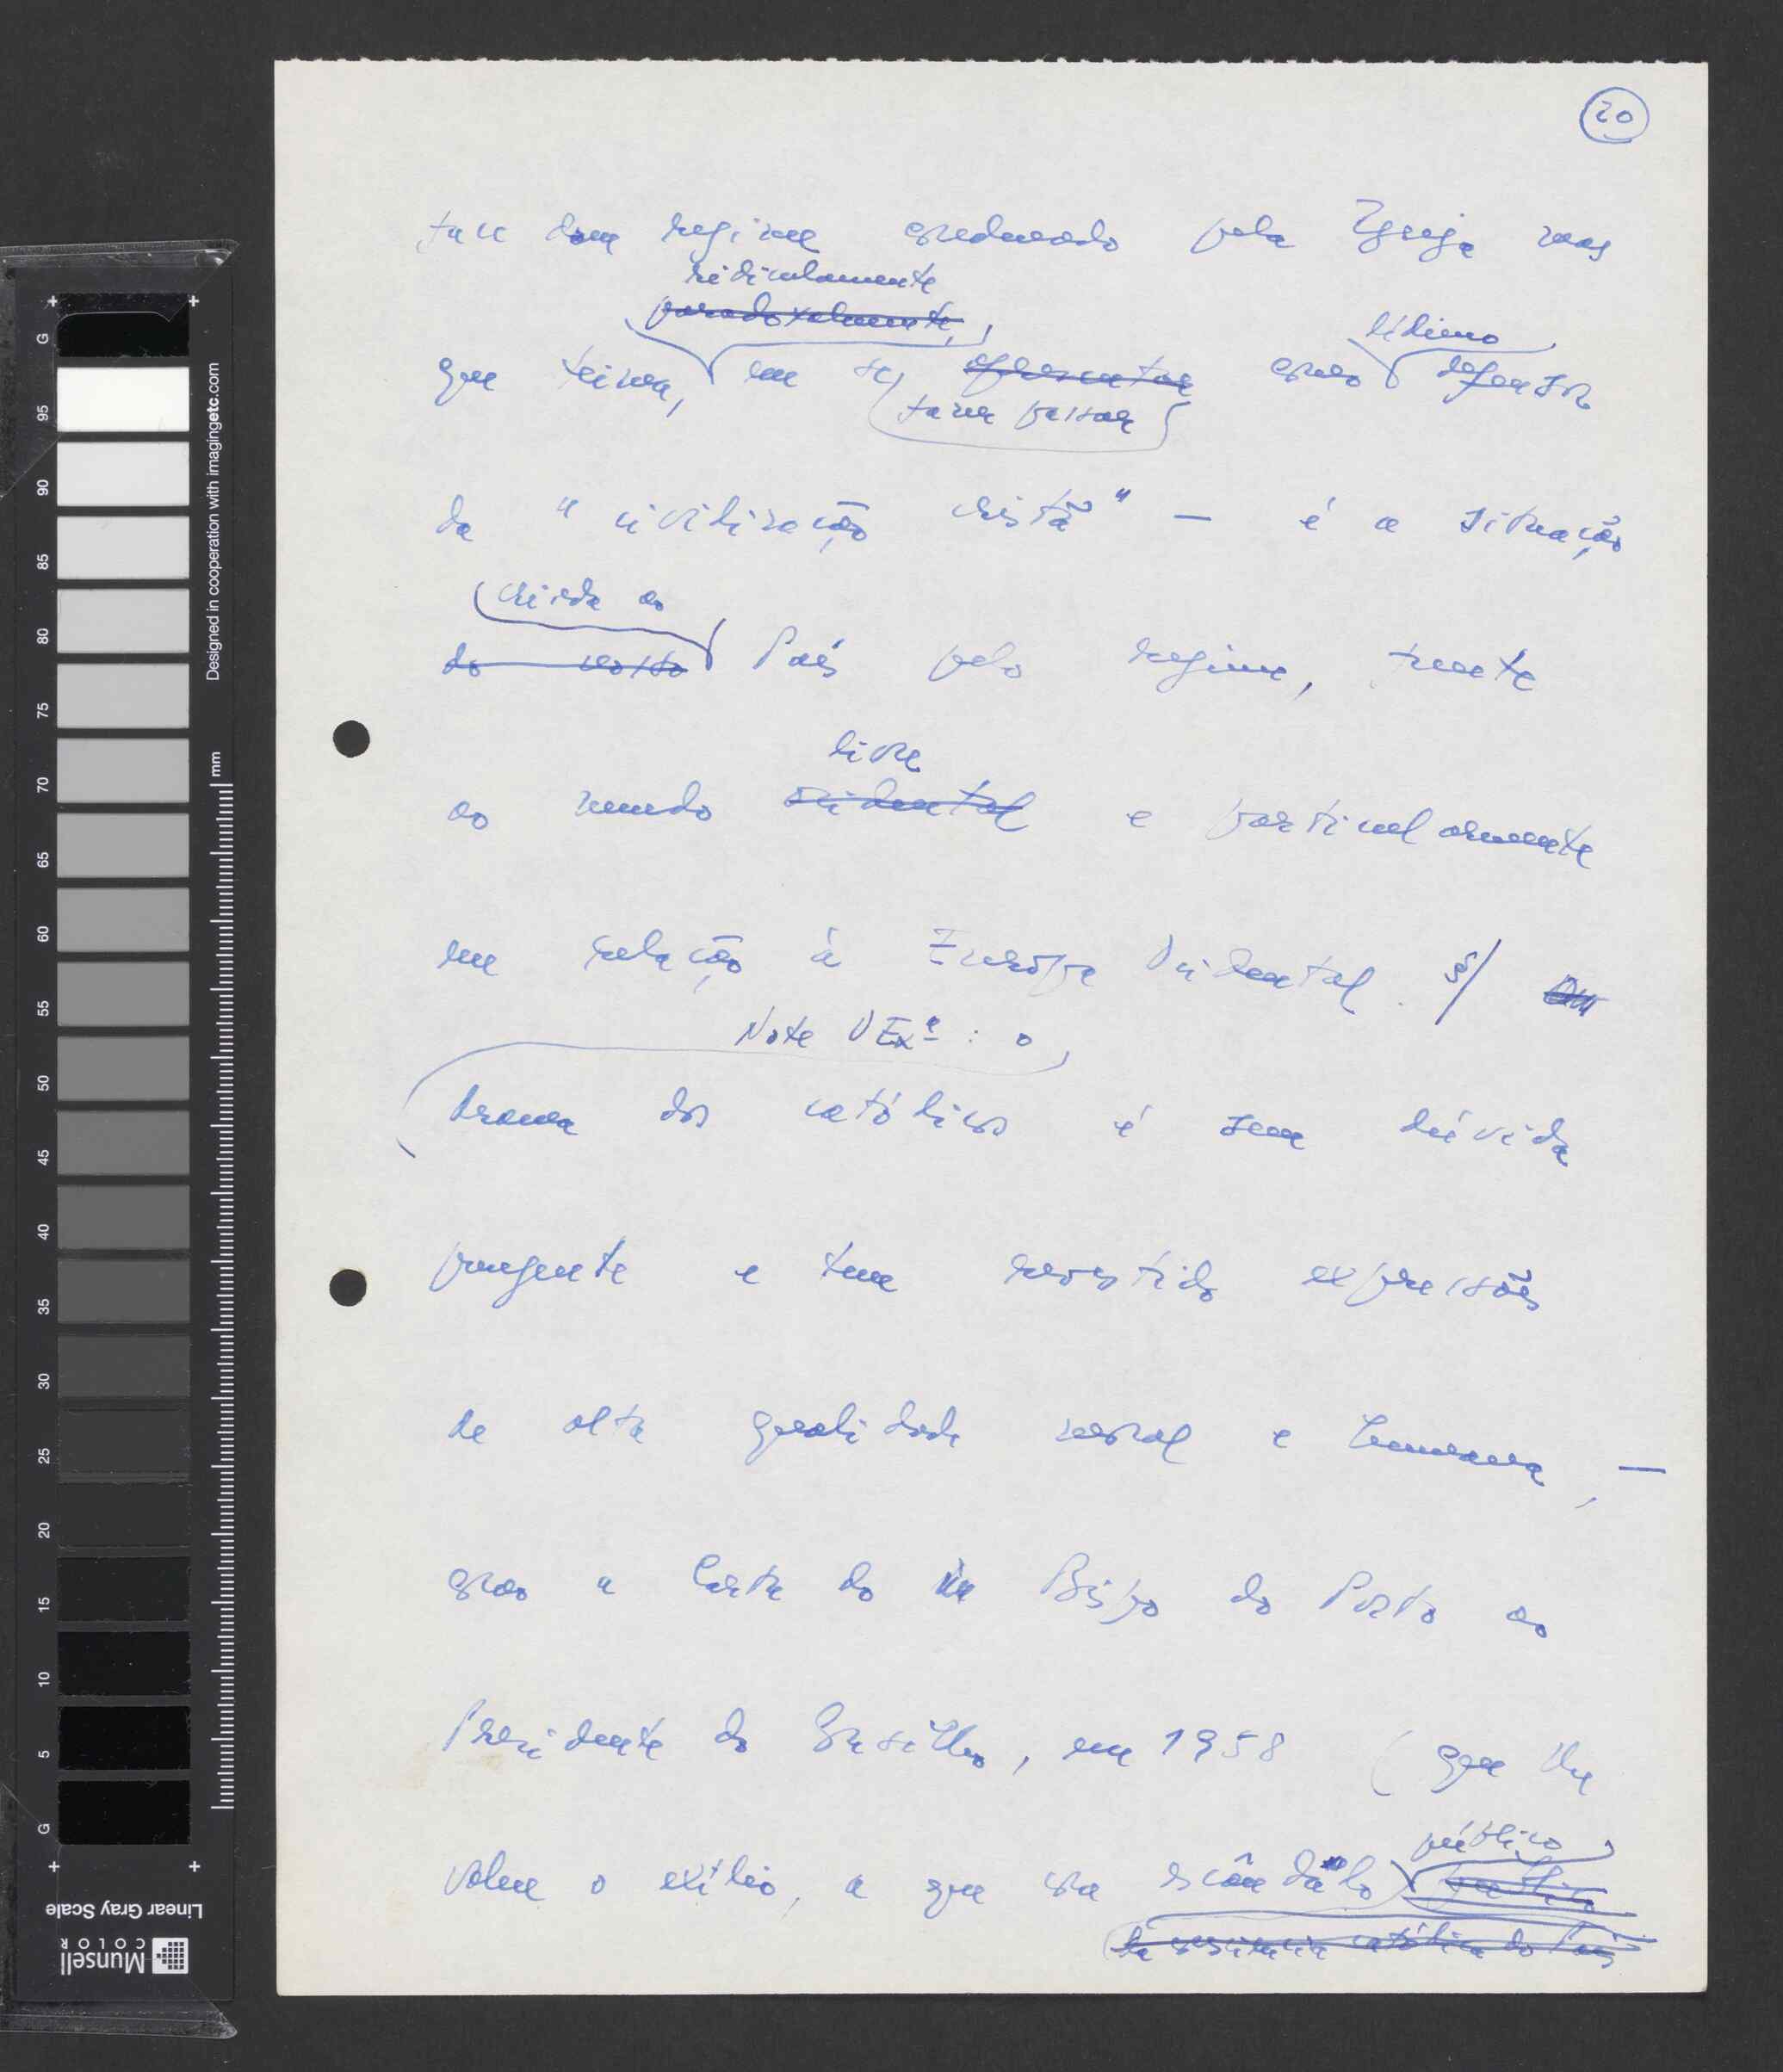 20
face dum regime condenado pela Igreja mas
ridiculamente
paradoxalmente,
lídimo
que teima, em se apresentar como defensor
fazer passar
da "civilização cristã" — é a situação
criada ao
do nosso País pelo regime, frente
livre
ao mundo ocidental e particularmente
em relação à Europa Ocidental. §/
Note VExª: o
drama dos católicos é sem dúvida
pungente e tem revestido expressões
de alta qualidade moral e humana, —
como a Carta do Bispo do Porto ao
Presidente do Conselho, em 1958 (que lhe
público
valeu o exílio, a que com escândalo público
da consciência católica do País
Designed in cooperation with imagingetc.com
mm
G 95 90 85 80 75 70 65 60 55 50 45 40 35 30 25 20 15 10 5 G
Linear Gray Scale
Munsell
COLOR